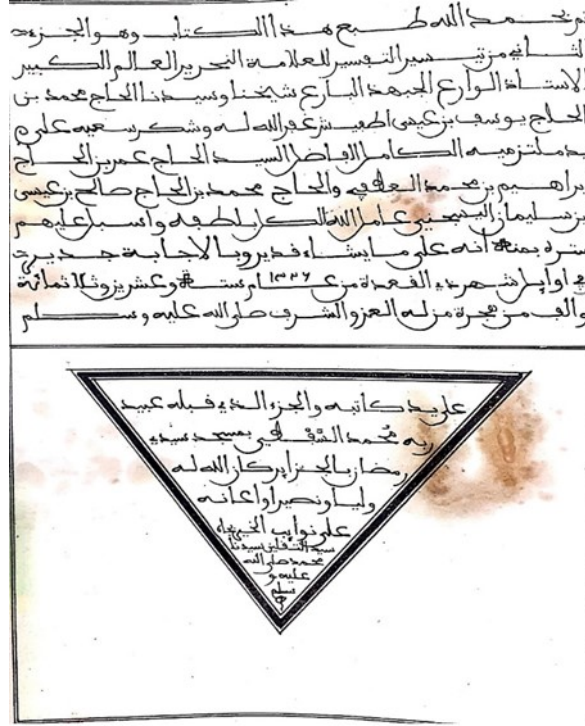 تم بحمد الله طبع هذا الكتاب وهو الجزء
الثاني من تيسير التفسير للعلامة النحرير العالم الكبير
الاستاذ الوارع الجهبذ البارع شيخنا وسيدنا الحاج محمد بن
الحاج يوسف بن عيسى اطفيش غفر الله له وشكر سعيه على
يد ملتزميه الكامل الفاضل السيد الحاج عمر بن الحاج
ابراهيم بن محمد العطفي والحاج محمد بن الحاج صالح بن عيسى
بن سليمان اليسجني عامل الله الكل بلطفه واسبل عليهم
ستره بمنه انه على ما يشاء قدير وبالاجابة جدير
في اوايل شهر ذي القعدة من عام ١٣٢٦ ستة وعشرين وثلاثمائة
والف من هجرة من له العز والشرف صلى الله عليه وسلم
على يد كاتبه والجزء الذي قبله عبيد
ربه محمد بمسجد سيدي
رمضان بالجزاير كان الله له
وليا ونصيرا واعانه
على نوايب الخير بجاه
سيد الثقلين سيدنا
محمد صلى الله
عليه و
سلم